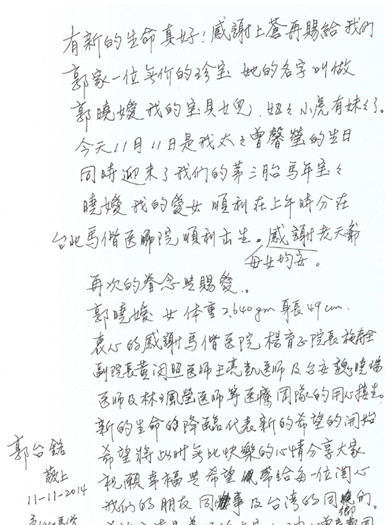 有新的生命真好!感謝上蒼再賜給我們
郭家一位無价的珍宝 她的名字叫做
郭曉嬡 我的宝貝女兒.妞々小虎有妹々了。
今天11月11日是我太々曾馨瑩的生日
同時迎來了我們的第三胎馬年宝々
曉嬡 我的愛女 順利在上午時分在
台北馬偕医院順利出生。感謝老天爺
母女均安。
再次的眷念與賜愛。
郭曉嬡 女 体重2,640gm 身長49cm.
衷心的感謝馬偕医院 楊育正院長 施壽全
副院長黃閔照医師 王亮凱医師及台安
医師及林 鳳瑩医師等医療團隊的用心接生。
新的生命的降臨代表新的希望的開始
希望將此時無比快樂的心情分享大家
祝願幸福與希望 帶給每一位関心
我們的朋友 同事及台湾的同鄉們。
郭台銘
敬上
11-11-2014